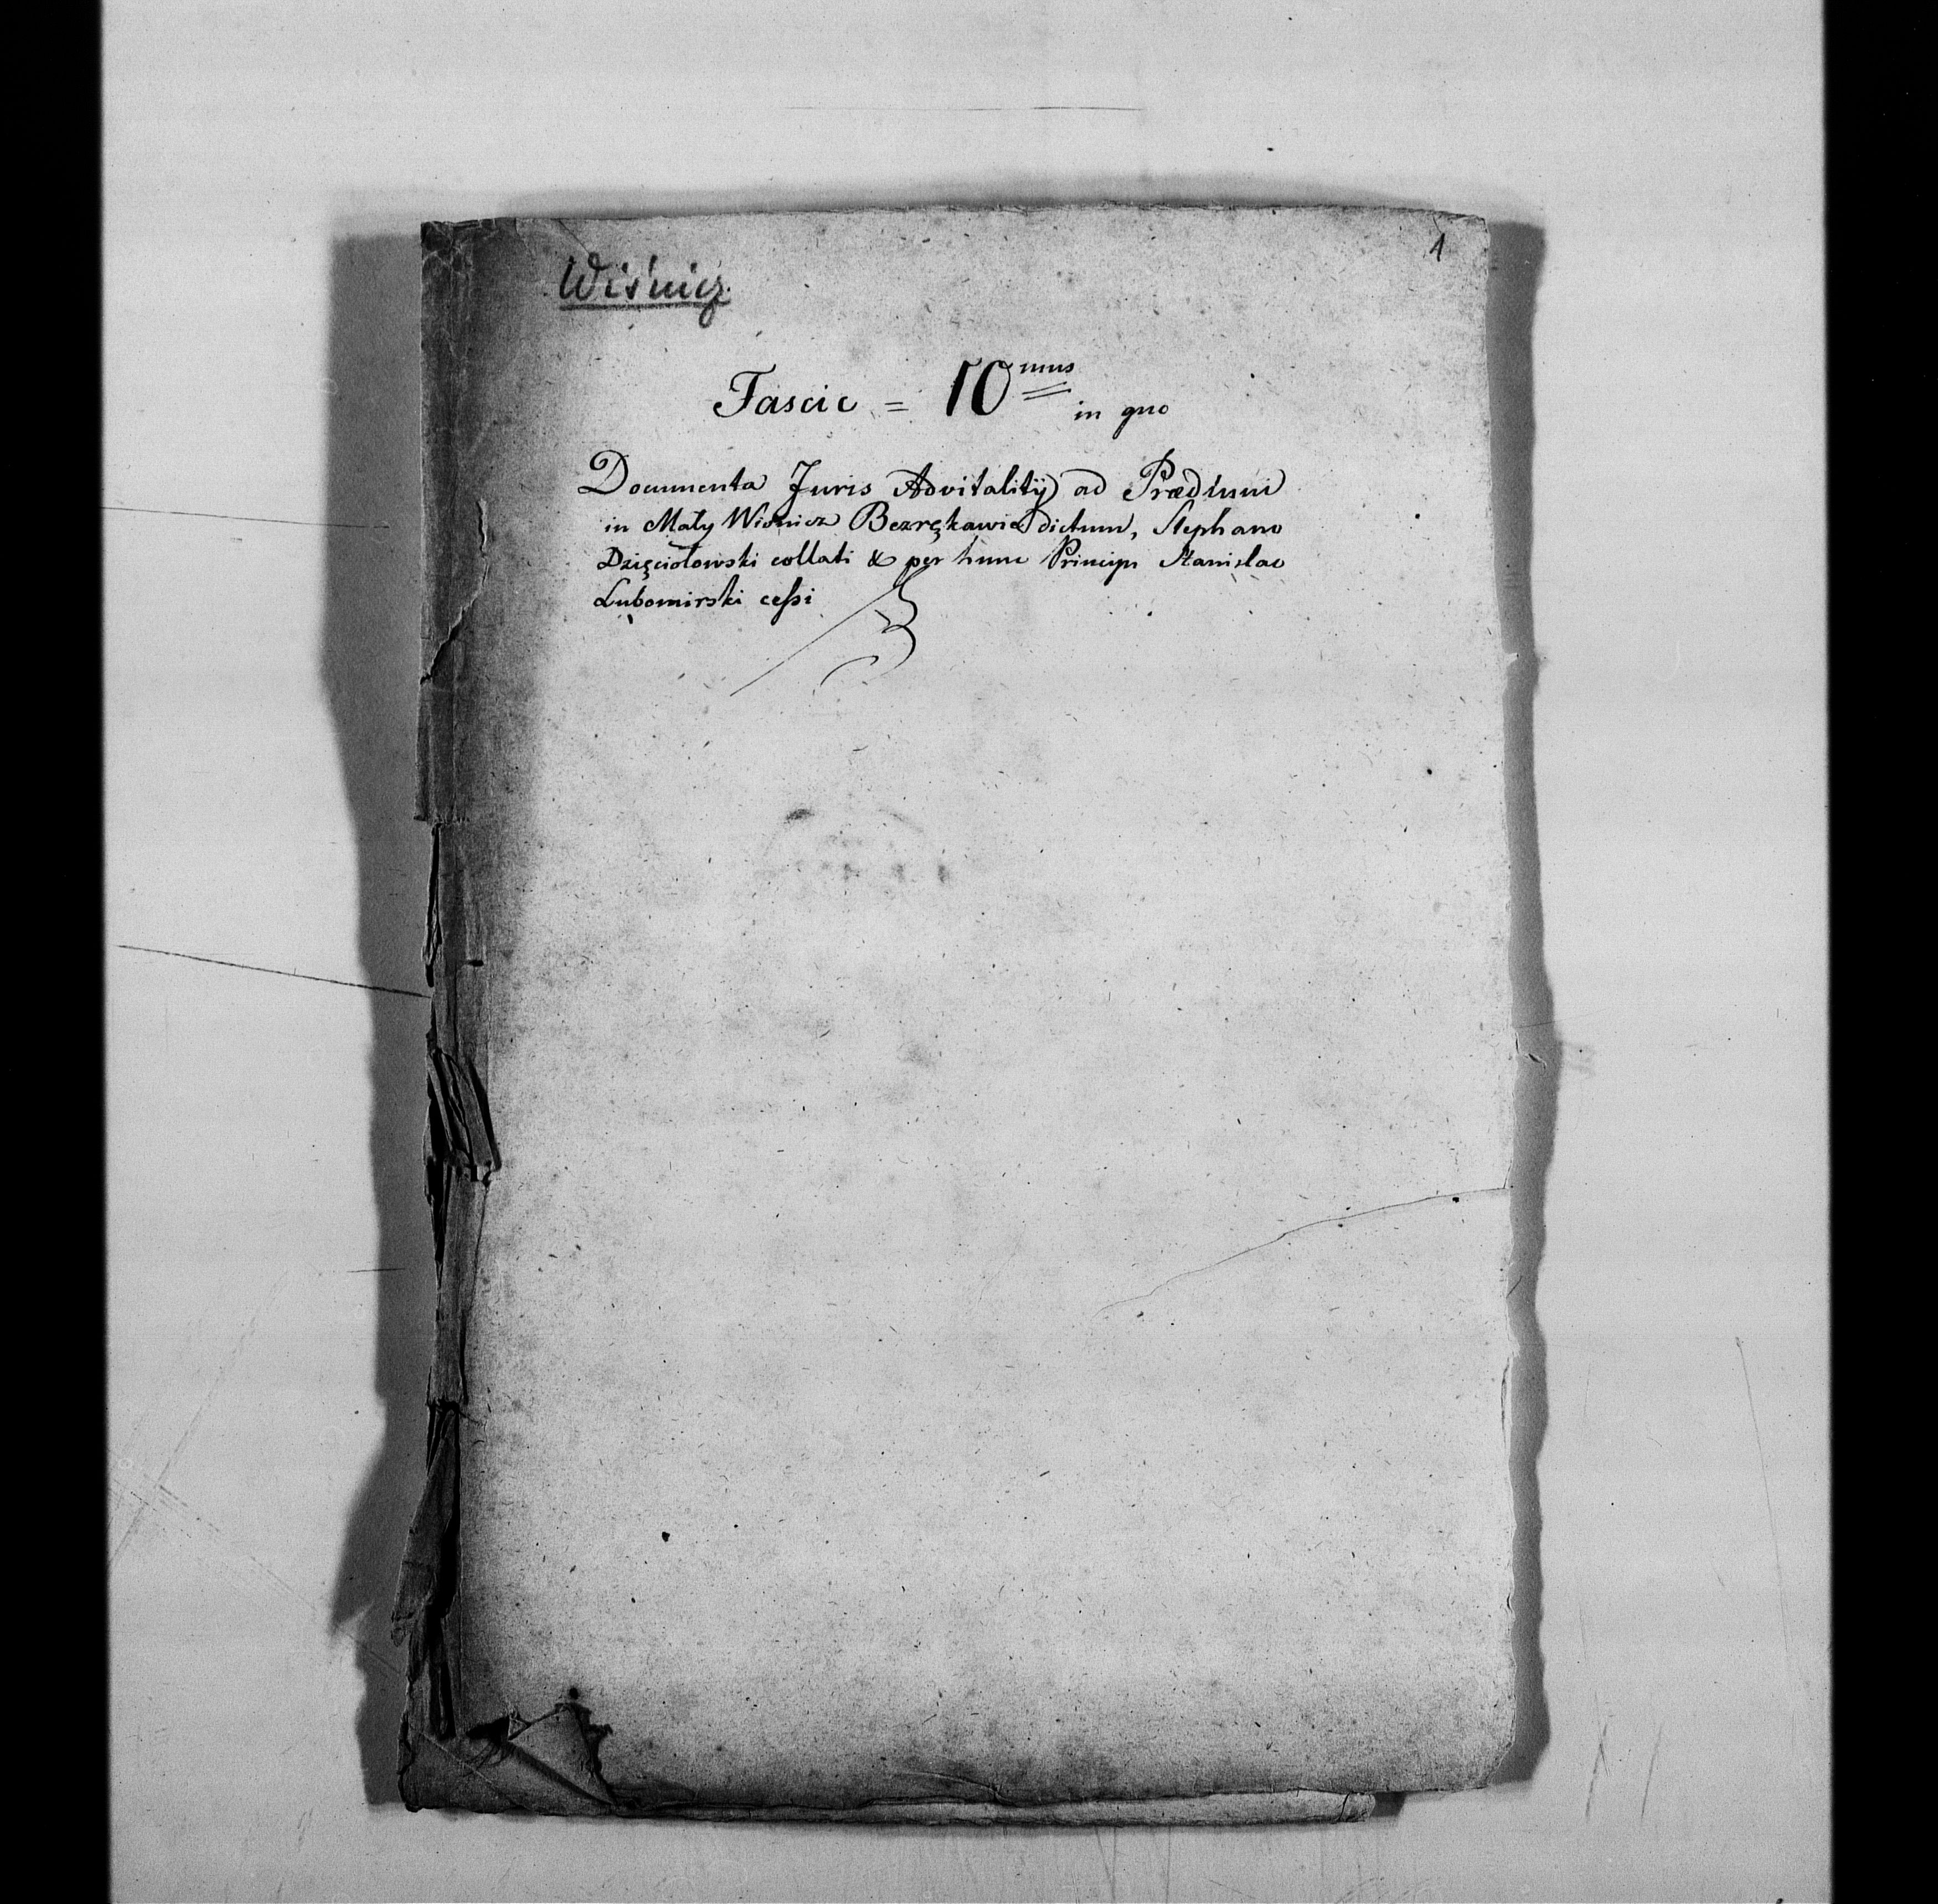 1
Wiśnicz
Fascic = 10mus in quo
Documenta Juris Advitalitÿ ad Prædium
in Mały Wisnicz Bezrękawie dictum, Stephano
Dzięciołowski collati & per hunc Principi Stanislao
Lubomirski cessi